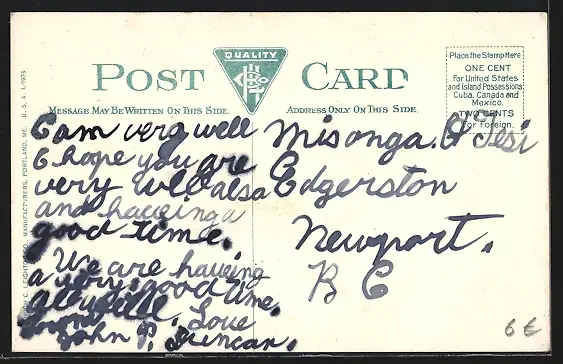 QUALITY
POST CARD
Place the Stamp Here
ONE CENT
For United States
and Island Possessions
Cuba, Canada and
Mexico.
TWO CENTS
for Foreign.
MESSAGE MAY BE WRITTEN ON THIS SIDE.
ADDRESS ONLY ON THIS SIDE.
I am very well
I hope you are
very well also
and haveing a
good time.
We are haveing
a very good time.
Love
John P. Duncan.
Edgerston
Newport.
R I
6 €
MANUFACTURERS, PORTLAND, ME. U. S. A. L-1975